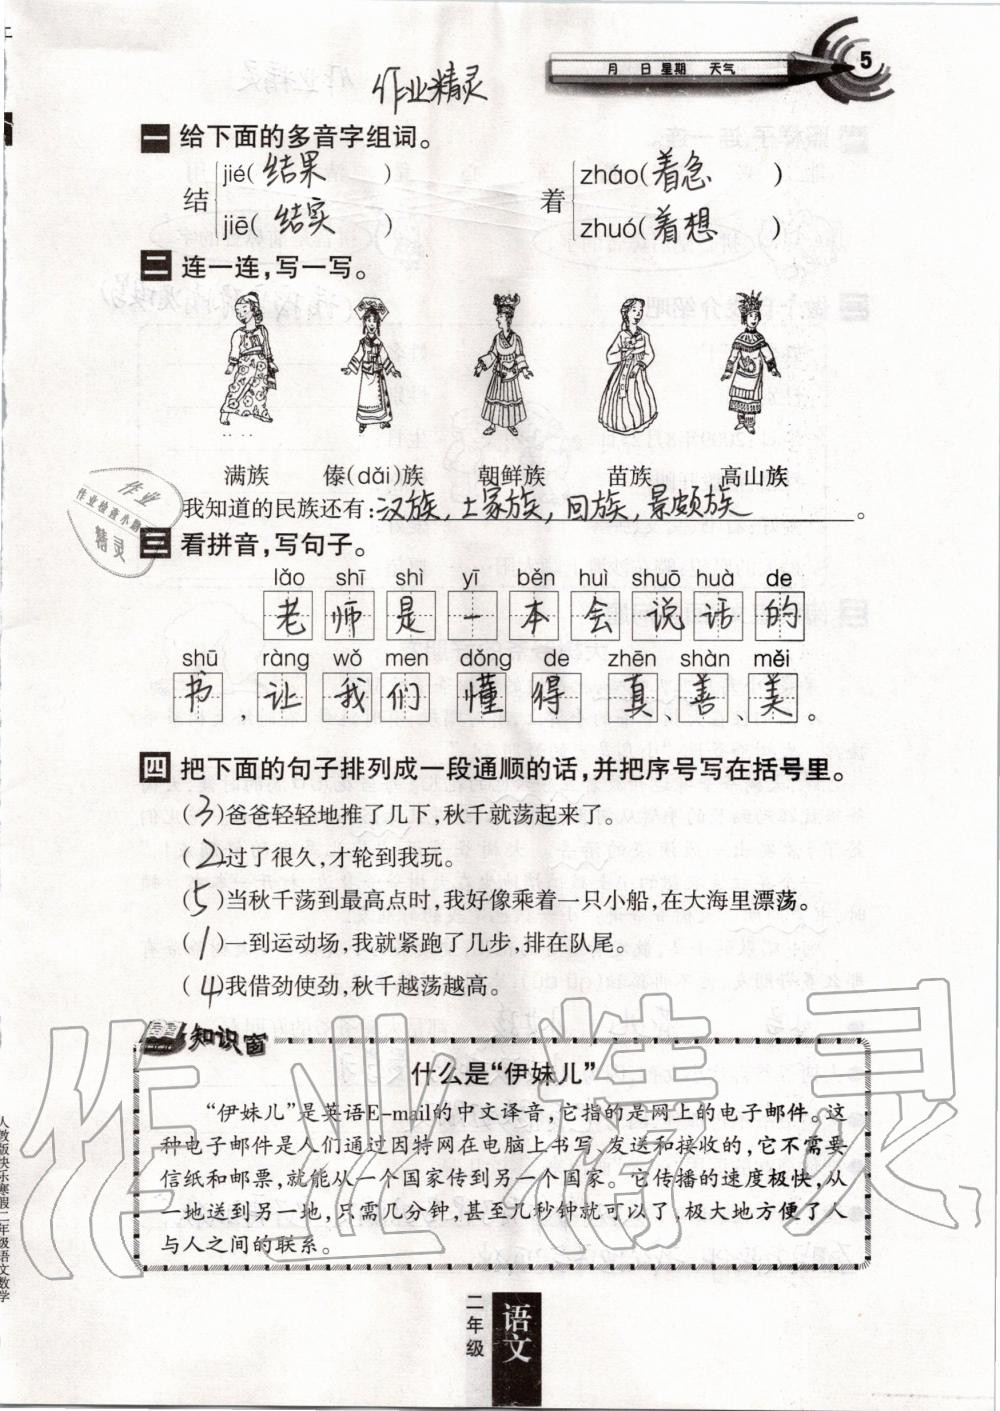 月 日 星期 天气
5
作业精灵
一 给下面的多音字组词。
结 jié( 结果 ) jiē( 结实 ) 着 zháo( 着急 ) zhuó( 着想 )
二 连一连,写一写。
满族 傣(dǎi)族 朝鲜族 苗族 高山族
我知道的民族还有:汉族,土家族,回族,景颇族。
三 看拼音,写句子。
lǎo shī shì yī běn huì shuō huà de
老 师 是 一 本 会 说 话 的
shū ràng wǒ men dǒng de zhēn shàn měi
书 , 让 我 们 懂 得 真 、 善 、 美 。
四 把下面的句子排列成一段通顺的话,并把序号写在括号里。
(3)爸爸轻轻地推了几下,秋千就荡起来了。
(2)过了很久,才轮到我玩。
(5)当秋千荡到最高点时,我好像乘着一只小船,在大海里漂荡。
(1)一到运动场,我就紧跑了几步,排在队尾。
(4)我借劲使劲,秋千越荡越高。
知识窗
什么是“伊妹儿”
“伊妹儿”是英语E-mail的中文译音,它指的是网上的电子邮件。这
种电子邮件是人们通过因特网在电脑上书写、发送和接收的,它不需要
信纸和邮票,就能从一个国家传到另一个国家。它传播的速度极快,从
一地送到另一地,只需几分钟,甚至几秒钟就可以了,极大地方便了人
与人之间的联系。
作业精灵
作业
作业检查小助
精灵
人教版快乐寒假二年级语文数学
二年级
语文